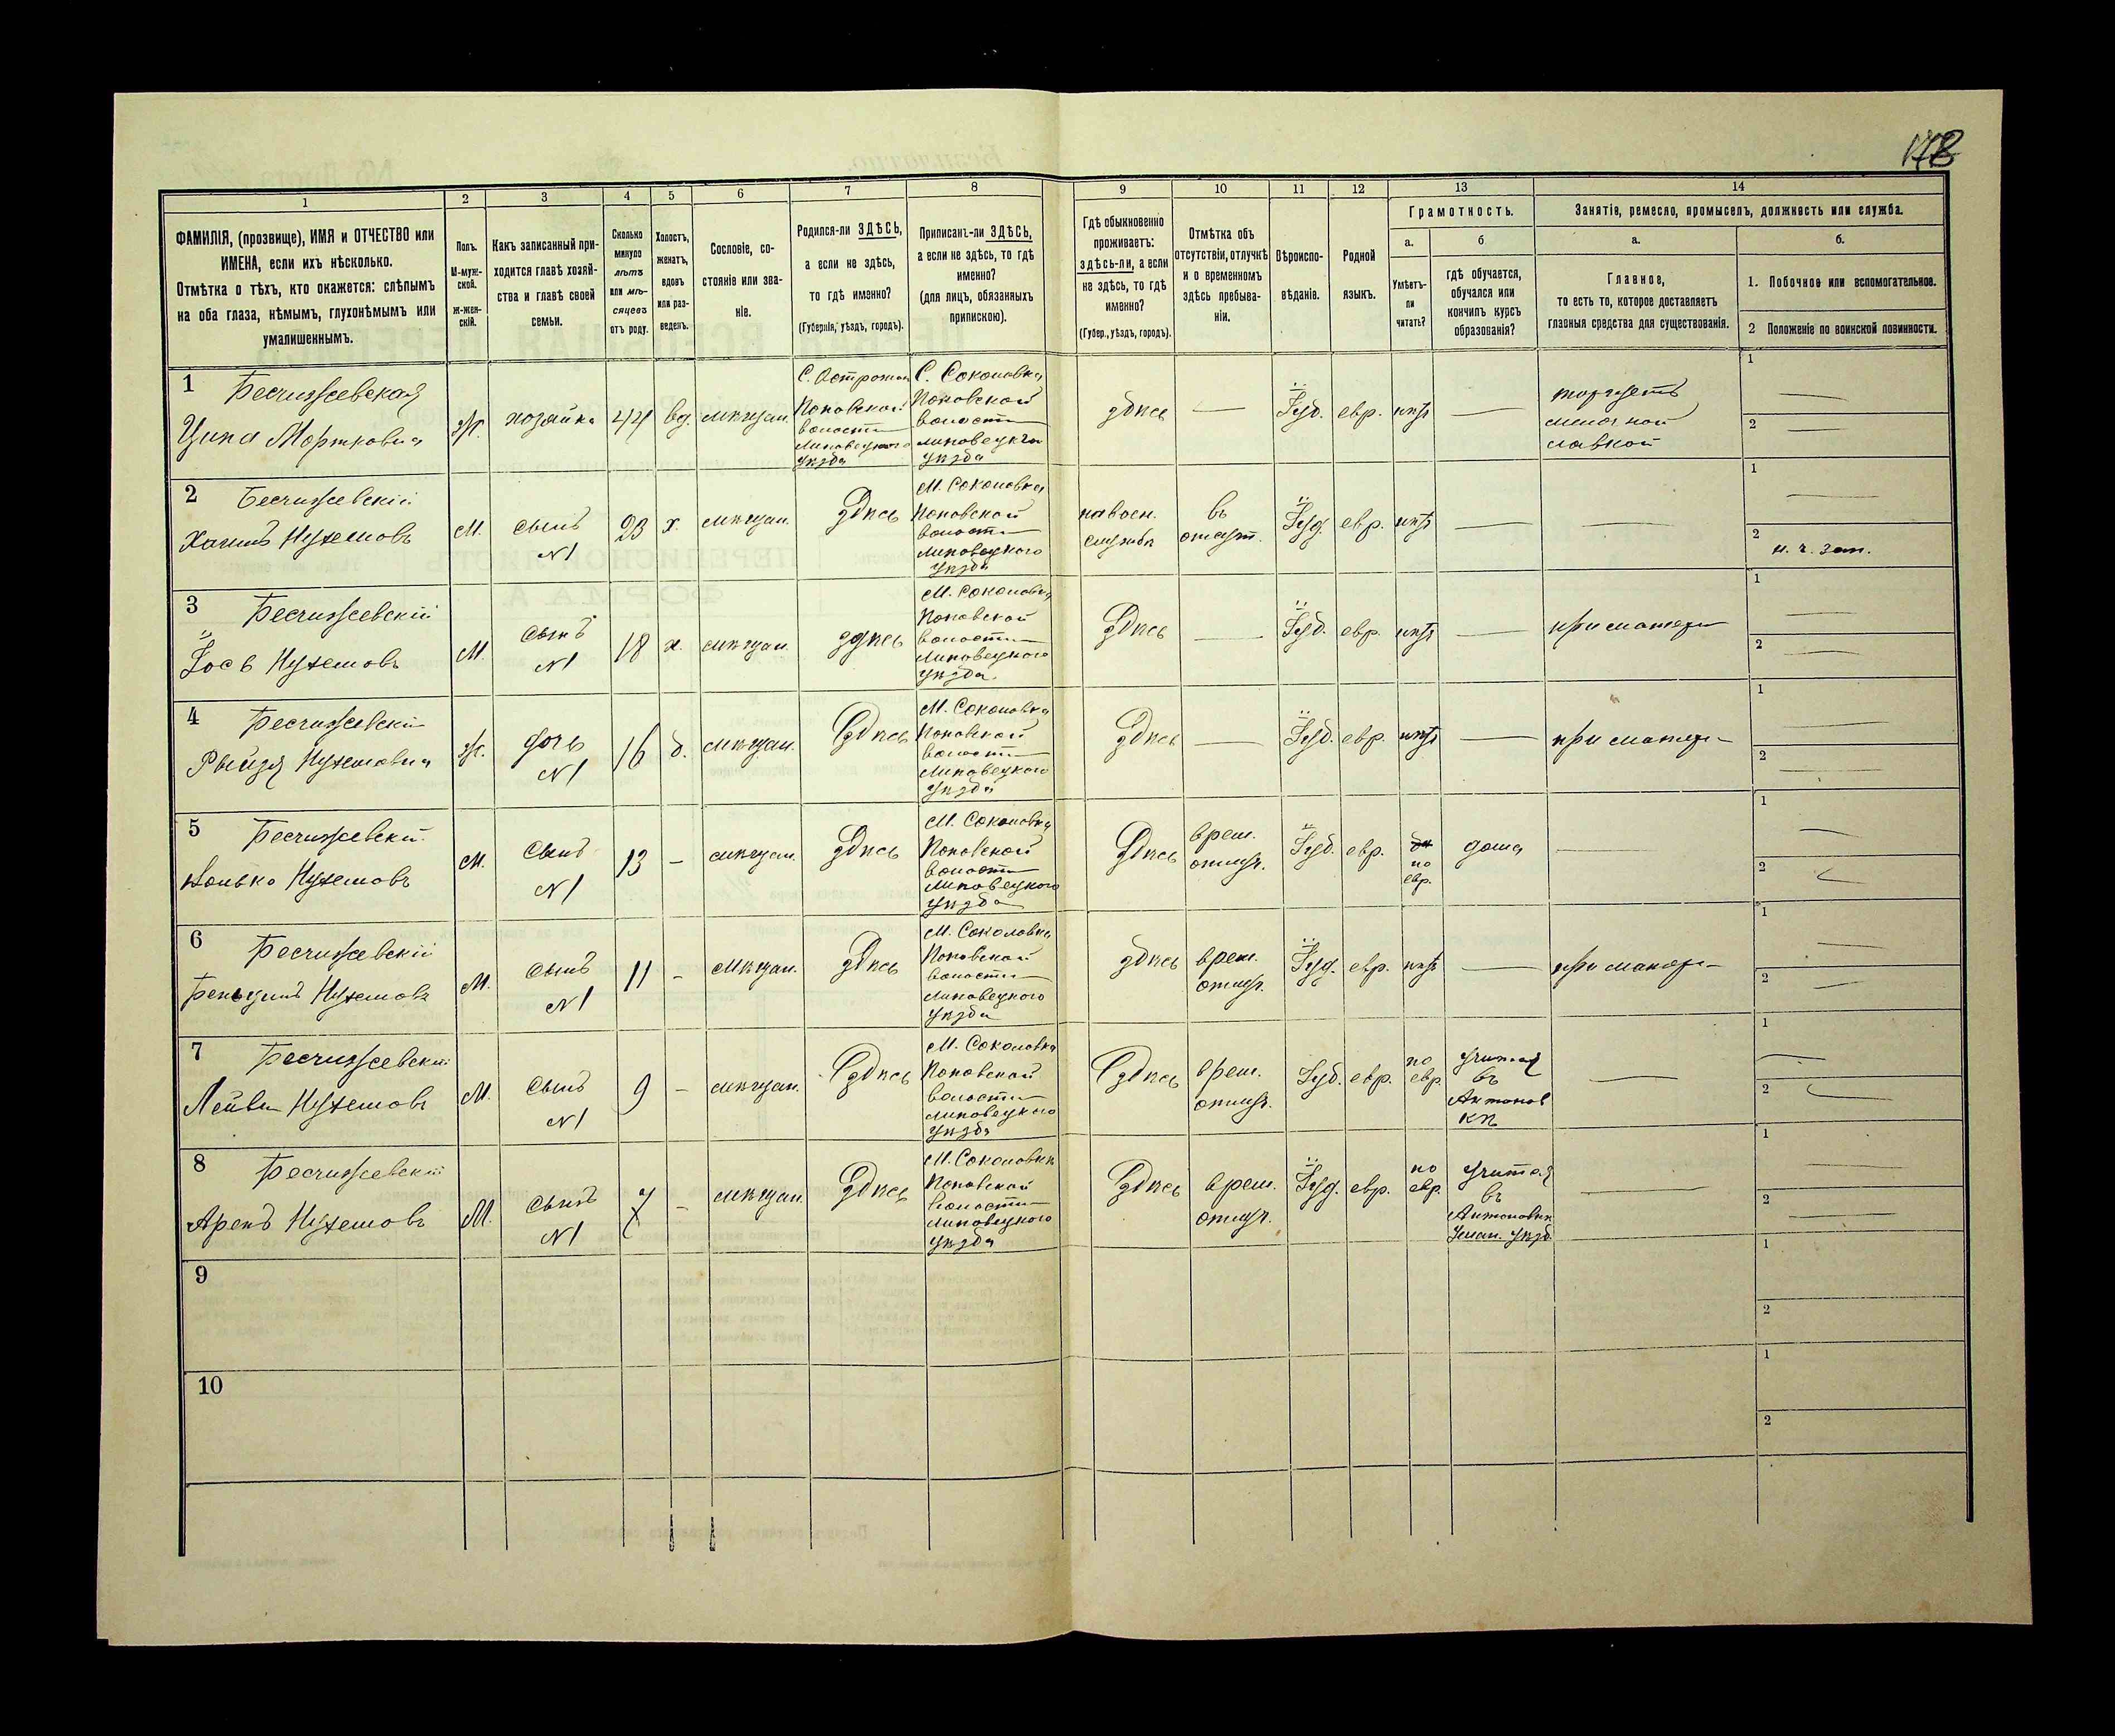 178
1
2
3
4
5
6
7
8
9
10
11
12
13
14
ФАМИЛІЯ, (прозвище), ИМЯ и ОТЧЕСТВО или
ИМЕНА, если ихъ нѣсколько.
Отмѣтка о тѣхъ, кто окажется: слѣпымъ
на оба глаза, нѣмымъ, глухонѣмымъ или
умалишеннымъ.
Полъ.
М-муж-
ской.
Ж-жен-
скій.
Какъ записанный при-
ходится главѣ хозяй-
ства и главѣ своей
семьи.
Сколько
минуло
лѣтъ
или мѣ-
сяцевъ
отъ роду.
Холостъ,
женатъ,
вдовъ
или раз-
веденъ.
Сословіе, со-
стояніе или зва-
ніе.
Родился-ли ЗДѢСЬ,
а если не здѣсь,
то гдѣ именно?
(Губернія, уѣздъ, городъ).
Приписанъ-ли ЗДѢСЬ,
а если не здѣсь, то гдѣ
именно?
(для лицъ, обязанныхъ
припискою).
Гдѣ обыкновенно
проживаетъ:
здѣсь-ли, а если
не здѣсь, то гдѣ
именно?
(Губер., уѣздъ, городъ).
Отмѣтка объ
отсутствіи, отлучкѣ
и о временномъ
здѣсь пребыва-
ніи.
Вѣроиспо-
вѣданіе.
Родной
языкъ.
Грамотность.
а.
Умѣетъ-
ли
читать?
б
гдѣ обучается,
обучался или
кончилъ курсъ
образованія?
Занятіе, ремесло, промыселъ, должность или служба.
а.
Главное,
то есть то, которое доставляетъ
главныя средства для существованія.
б.
1. Побочное или вспомогательное.
2 Положеніе по воинской повинности.
1
Бесчижевская
Ципа Мортковна
Ж.
хозяйка
44
вд.
мѣщан.
Поповской
волости
Липовецкого
уѣзда
С. Соколовка
Поповской
волости
Липовецкго
уѣзда
здѣсь
—
Іуд.
евр.
нѣтъ
—
торгуетъ
мелочной
лавкой
1 —
2 —
2
Бесчижевскій
Хаимъ Нухемовъ
М.
сынъ
N1
23
х.
мѣщан.
здѣсь
М. Соколовка
Поповской
волости
Липовецкого
уѣзда
на воен.
службѣ
въ
отлуч.
Іуд.
евр.
нѣтъ
—
—
1 —
2 н. ч. зап.
3
Бесчижевскій
Іось Нухемовъ
М.
сынъ
N1
18
х.
мѣщан.
здѣсь
М. Соколовка
Поповской
волости
Липовецкого
уѣзда
здѣсь
—
Іуд.
евр.
нѣтъ
—
при матери
1 —
2 —
4
Бесчижевскій
Рейзя Нухемовна
Ж.
дочь
N1
16
д.
мѣщан.
здѣсь
М. Соколовка
Поповской
волости
Липовецкого
уѣзда
здѣсь
—
Іуд.
евр.
нѣтъ
—
при матери
1 —
2 —
5
Бесчижевскій
Нухемовъ
М.
сынъ
N1
13
—
мѣщан.
здѣсь
М. Соколовка
Поповской
волости
Липовецкого
уѣзда
здѣсь
врем.
отлуч.
Іуд.
евр.
по
евр.
дома
—
1 —
2 —
6
Бесчижевскій
Беньуминъ Нухемовъ
М.
сынъ
N1
11
—
мѣщан.
здѣсь
М. Соколовка
Поповской
волости
Липовецкого
уѣзда
здѣсь
врем.
отлуч.
Іуд.
евр.
нѣтъ
—
при матери
1 —
2 —
7
Бесчижевскій
Лейви Нухемовъ
М.
сынъ
N1
9
—
мѣщан.
здѣсь
М. Соколовка
Поповской
волости
Липовецкого
уѣзда
здѣсь
врем.
отлуч.
Іуд.
евр.
по
евр.
учится
въ
Антонов
кѣ
—
1 —
2 —
8
Бесчижевскій
Аренъ Нухемовъ
М.
сынъ
N1
7
—
мѣщан.
здѣсь
М. Соколовка
Поповской
волости
Липовецкого
уѣзда
здѣсь
врем.
отлуч.
Іуд.
евр.
по
евр.
учится
въ
Антоновкѣ
Уман. уѣзд
—
1 —
2 —
9
1
2
10
1
2